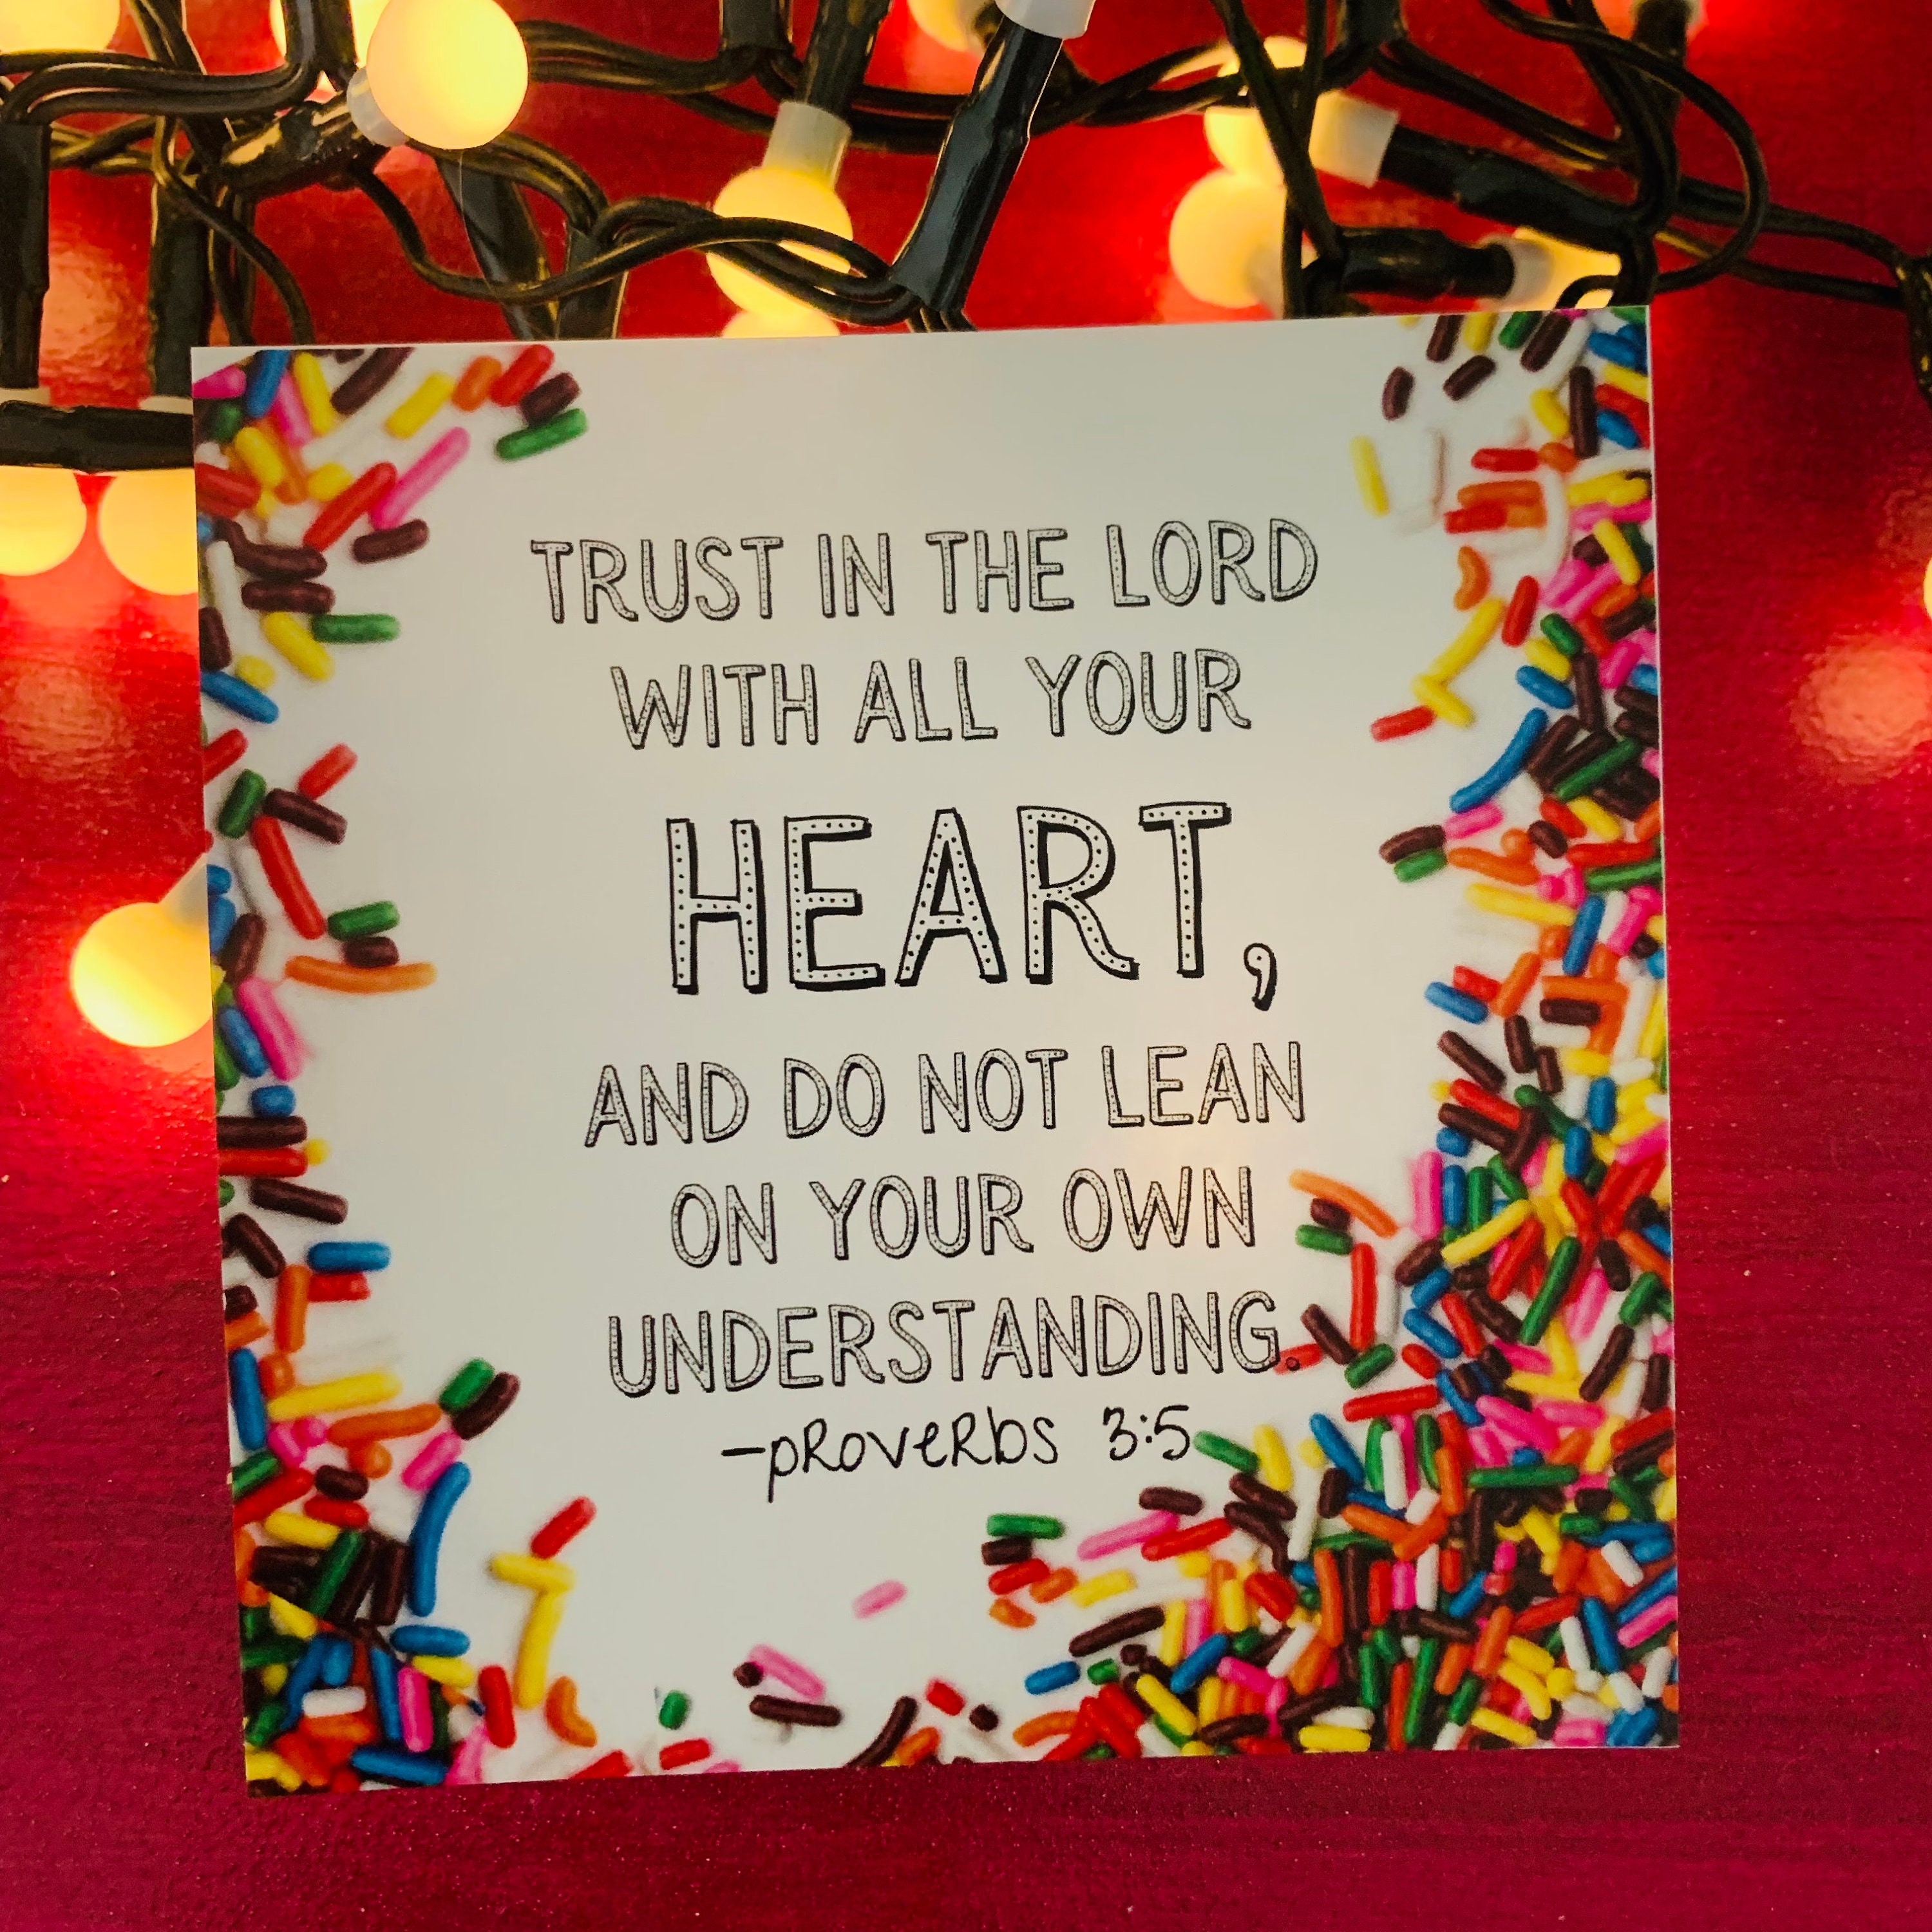 TRUST IN THE LORD
WITH ALL YOUR
HEART,
AND DO NOT LEAN
ON YOUR OWN
UNDERSTANDING.
-PROVERBS 3:5